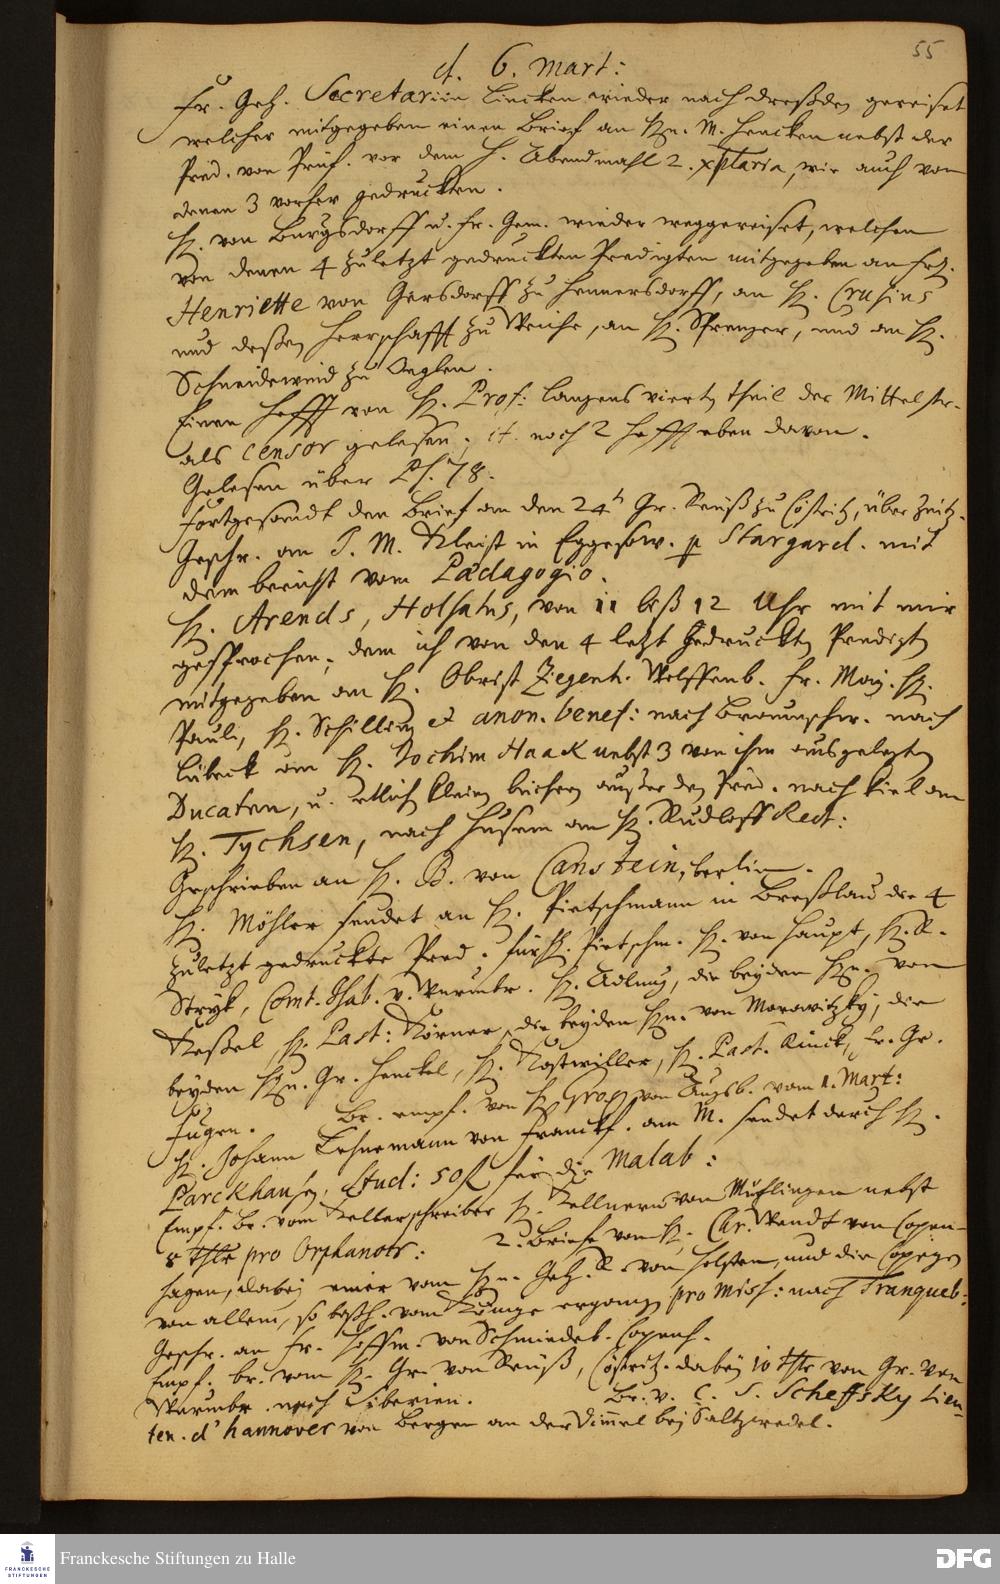 55
d. 6. Mart:
Fr. Geh. Secretariin Lincken wieder nach Dreßden gereiset
welcher mitgegeben einen Brief an Hn. M. Hencken nebst der
Pred. von Prüf. vor dem H. Abendmahl 2. xplaria, wie auch von
denen 3 vorher gedruckten.
H. von Burgsdorff u. Fr. Gem. wieder weggereiset, welchen
von denen 4 zuletzt gedruckten Predigten mitgegeben an Frl.
Henriette von Gersdorff zu Hennersdorff, an H. Crusius
und deßen Herrschafft zu Reiche, an H. Sprenger, und an H.
Schneidewind zu Oeglen.
Einen Hefft von H. Prof: Langens vierten Theil der Mittelstr.
als censor gelesen; it. noch 2 Hefft eben davon.
Gelesen über Ps. 78.
Fortgesandt den Brief an den 24t Gr. Reuß zu Cöstritz, über Zeitz.
Geschr. an T. M. Kleist in Eggesow. p Stargard. mit
dem bericht vom Pædagogio.
H. Arends, Holsatus, von 11 biß 12 Uhr mit mir
gesprochen; dem ich von den 4 letzt gedruckten Predigten
mitgegeben an H. Obrist Ziegenh. Wolffenb. Fr. Maj. H.
Pauli, H. Schilling et anon. benef: nach Braunschw. nach
Lübeck an H. Jochim Haack nebst 3 von ihm ausgelegten
Ducaten, u. etlich kleine bücher außer den Pred. nach Kiel an
H. Tychsen, nach Husem an H. Rudloff Rect:
Geschrieben an H. B. von Canstein, berlin.
H. Möhler sendet an H. Pietschmann in Breßlau die 4
zuletzt gedruckte Pred. für H. Pietschm. H. von Haupt, H. R.
Stryk, Comt. Shab. v. Warmbr. H. Adlung, die beyden Hn. von
Keßel, H. Past: Körner, die beyden Hn. von Morawitzky, die
beyden Hn. Gr. Henckel, H. Roswiller, H. Past. Rinck, Fr. Gr.
Fugen. Br. empf. von H. Grop von Augsb. vom 1. Mart:
H. Johann Lehnemann von Franckf. am M. sendet durch H.
Parckhausen, Stud: 50 f für die Malab:
Empf. Br. vom Kellerschreiber H. Kellnern von Uchlingen nebst
8 thlr pro Orphanotr: 2. Briefe vom H. Chr. Wendt von Copen-
hagen, dabey einer vom Hn. Geh. R. von Holsten, und die Copeyen
von allem, so deßh. vom Könige ergangen pro miss: nach Tranqueb:
Geschr. an Fr. Hoffm. von Schmiedeb. Copenh.
Empf. br. vom H. Gr. von Reuß, Cöstritz. dabey 10 thlr von Gr. von
Warmbr. nach Siberien. Br. v. C. S. Scheffsky Lieu-
ten. d' hannover von Bergen an der Dümel bey Saltzwedel.
Franckesche Stiftungen zu Halle
FRANCKESCHE
STIFTUNGEN
DFG